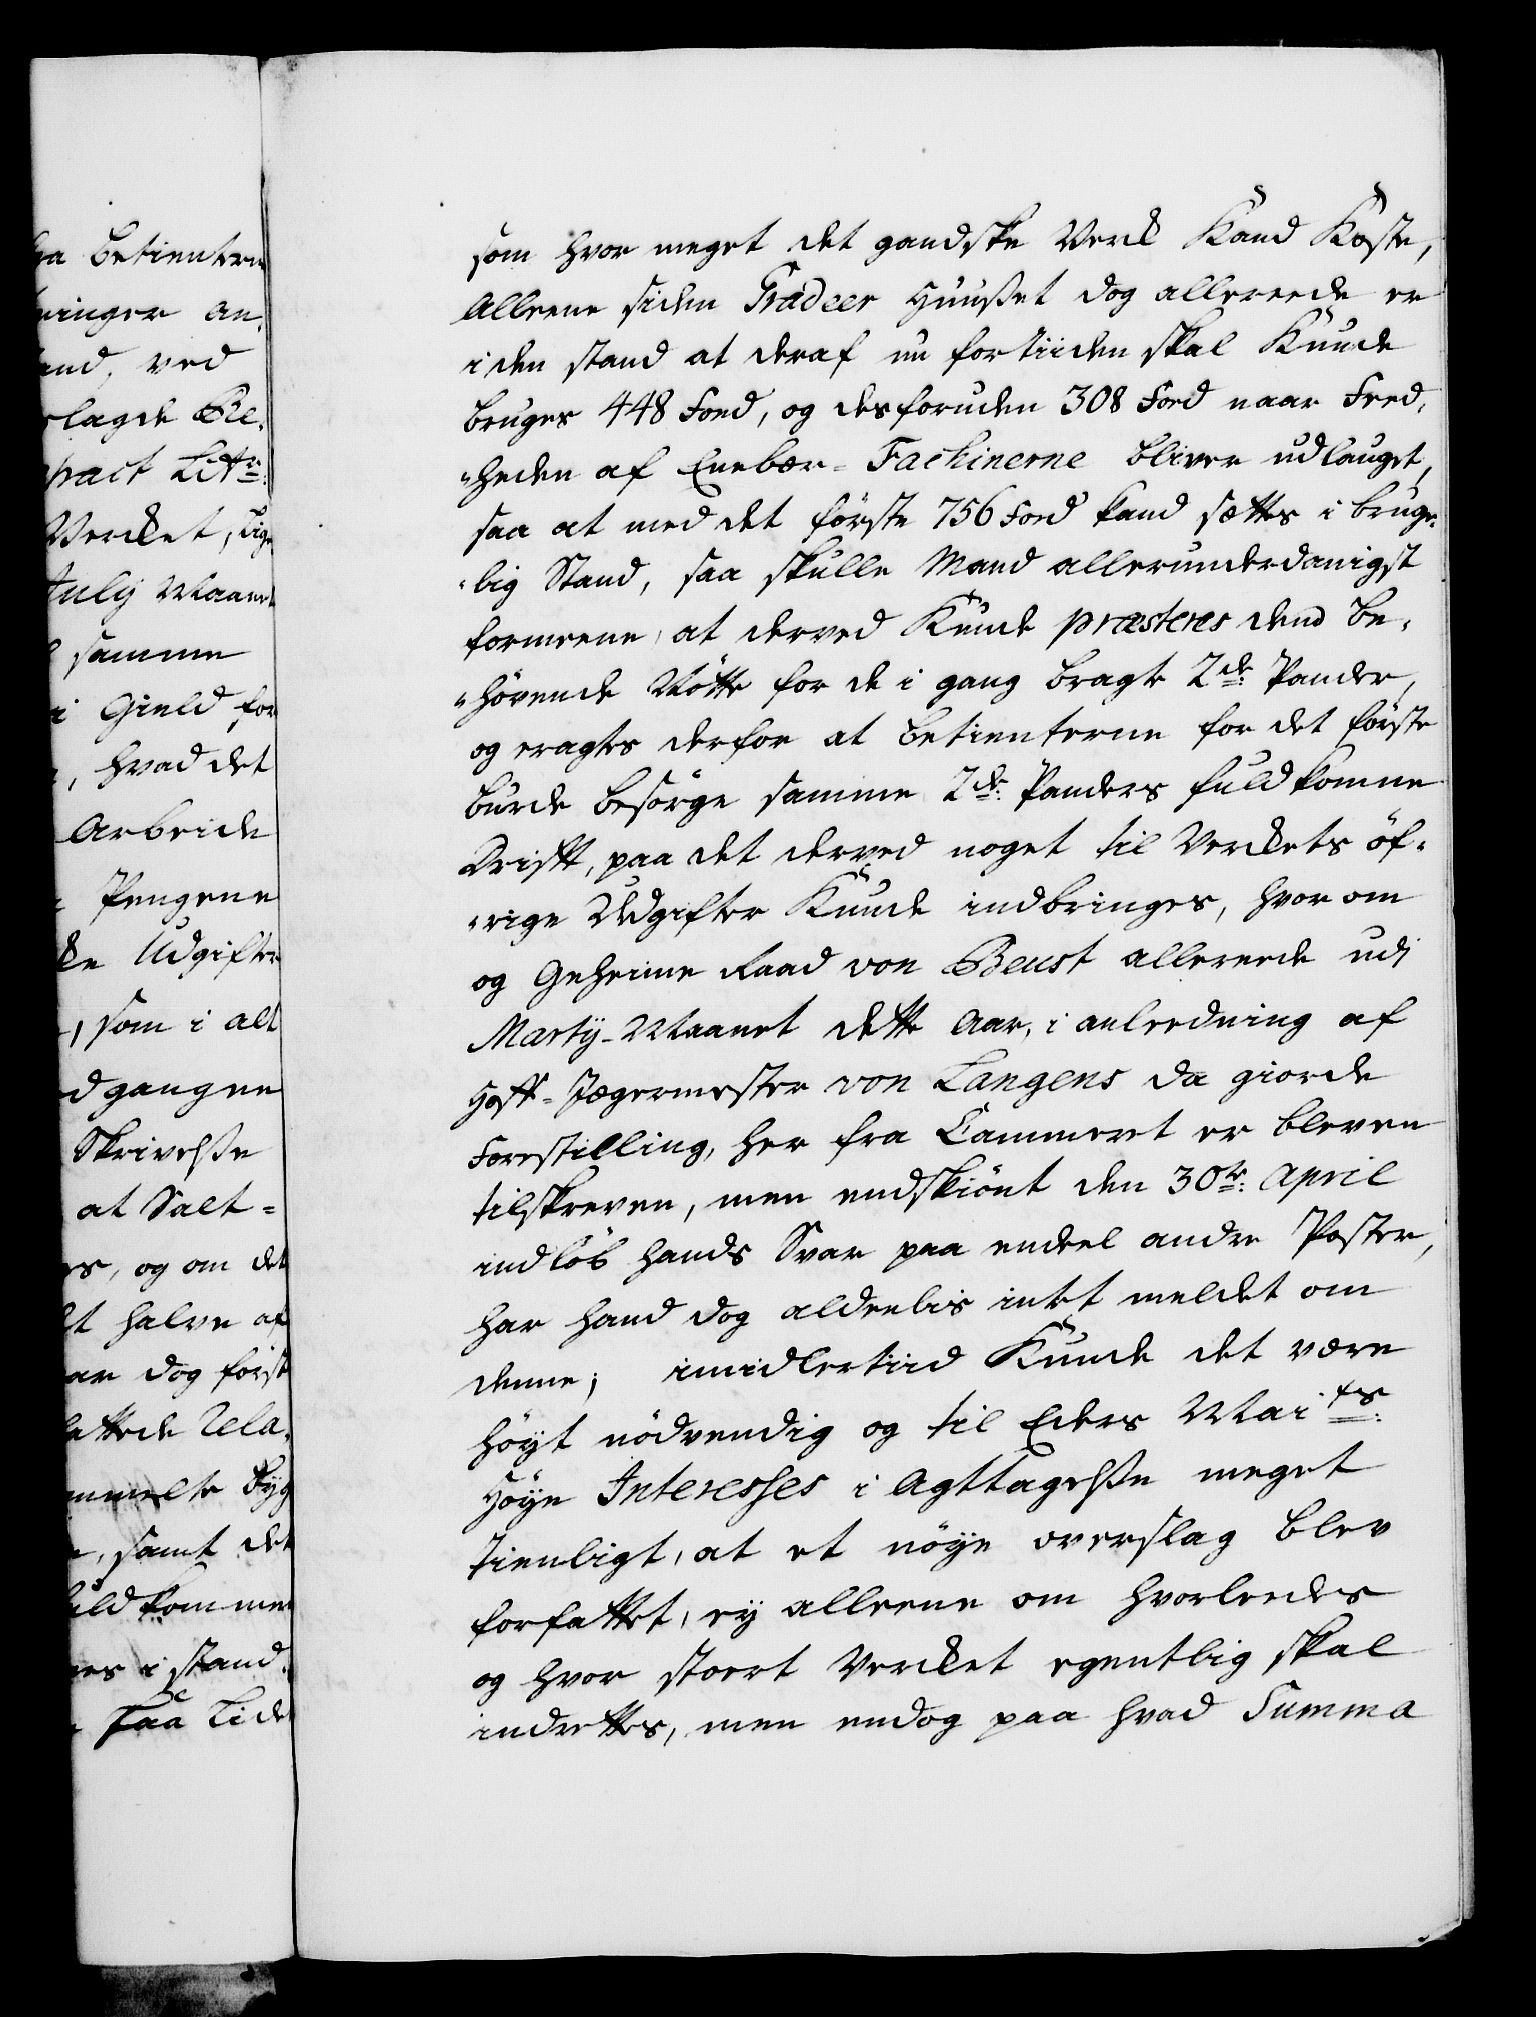 ga betienter
ninger an,
and, ved
rlagde Be,
pact Litr:
Verket, lige
July Maane
samme
i Gield for
, hvad det
Arbeide
Pengene
ke Udgifter
, som i alt
dgangne
Skrivelsse
at Salt-
es, og om det
t halve af
ar dog først
attede Rela,
mmelte byg
, samt det
uldkommen
nes i stand.
faa Tide
som hvor meget det gandske Verk Kand Koste,
Alleene siden Gradeer Huusset dog allereede er
i den stand at deraf nu for tiiden skal Kunde
bruges 448 Fod, og desforuden 308 Fod naar Feed,
"heden af Enebær-Fachinerne bliver udlauget,
saa at med det første 756 Fod kand sættes i brug-
"lig Stand, saa skulle Mand allerunderdanigst
formeene, at derved Kunde præsteres dend be,
"høvende Nötte for de i gang bragte 2de Pander,
og eragtes derfor at betienterne for det første
burde besørge samme 2de: Panders fuldkomne
Drift, paa det derved noget til Verkets öf-
"rige Udgifter Kunde indbringes, hvorom
og Geheime Raad von Beust allereede udi
Marty-Maanet dette Aar, i anleedning af
Hoff-Jægermester von Langens da giorde
Forestilling, her fra Cammeret er bleven
tilskreven, men endskiønt den 30te: April
indløb hands Svar paa endeel andre Poster,
har hand dog aldeelis intet meldet om
denne; imidlertiid Kunde det være
höyt nödvendig og til Eders Maits:
Höye Interesses i Agttagelsse meget
tienligt, at et nöye overslag blev
forfattet, ey alleene om hvorledes
og hvor stoert Verket egentlig skal
indrettes, men endog paa hvad Summa